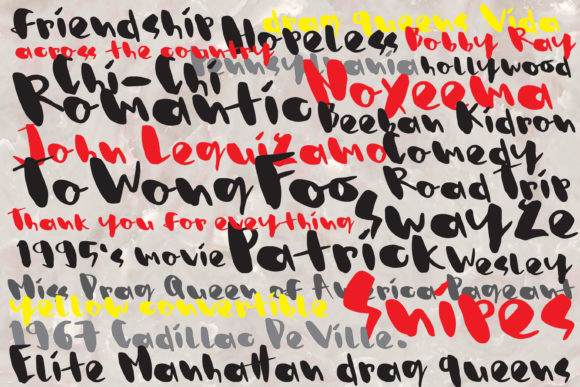 Friendship
drag queens Vida
Hopeless
Bobby Ray
across the country
Pennsylvania
hollywood
Chi-Chi
Romantic
Noxeema
Beeban Kidron
John Leguizamo
Comedy
To Wong Foo
Road Trip
Thank you for eveything
Swayze
1995's movie
Patrick
Wesley
Miss Drag Queen of America Pageant
yellow convertible
Snipes
1967 Cadillac De Ville.
Elite Manhattan drag queens